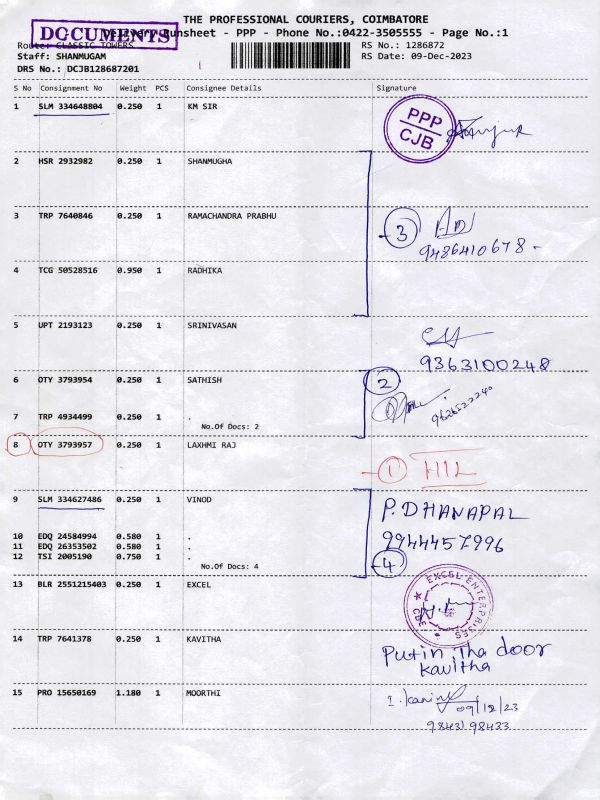 THE PROFESSIONAL COURIERS, COIMBATORE
DOCUMENTS
Delivery Runsheet - PPP - Phone No.:0422-3505555 - Page No.:1
Route: CLASSIC TOWERS
RS No.: 1286872
Staff: SHANMUGAM
RS Date: 09-Dec-2023
DRS No.: DCJB128687201
S No Consignment No Weight PCS Consignee Details Signature
1 SLM 334648804 0.250 1 KM SIR
PPP
CJB
2 HSR 2932982 0.250 1 SHANMUGHA
3 TRP 7640846 0.250 1 RAMACHANDRA PRABHU
3
9486410678-
4 TCG 50528516 0.950 1 RADHIKA
5 UPT 2193123 0.250 1 SRINIVASAN
9363100248
6 OTY 3793954 0.250 1 SATHISH
2
7 TRP 4934499 0.250 1 .
No.Of Docs: 2
8 OTY 3793957 0.250 1 LAXHMI RAJ
1
9 SLM 334627486 0.250 1 VINOD
P. DHANAPAL
10 EDQ 24584994 0.580 1 .
11 EDQ 26353502 0.580 1 .
9944457996
12 TSI 2005190 0.750 1 .
4
No.Of Docs: 4
13 BLR 2551215403 0.250 1 EXCEL
EXCEL ENTERPRISES
CBE
14 TRP 7641378 0.250 1 KAVITHA
Putin Tha door
kavitha
15 PRO 15650169 1.180 1 MOORTHI
09/12/23
98431 98433